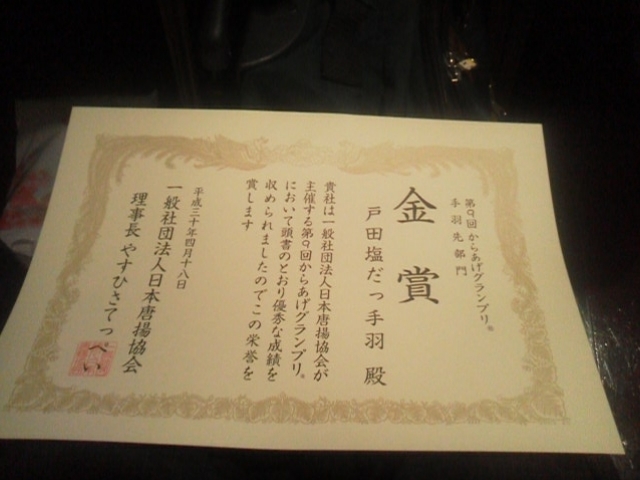 第9回からあげグランプリ®
手羽先部門
金賞
戸田塩だっ手羽 殿
貴社は一般社団法人日本唐揚協会が
主催する第9回からあげグランプリ®
において頭書のとおり優秀な成績を
収められましたのでこの栄誉を
賞します
平成三十年四月十八日
一般社団法人日本唐揚協会
理事長 やすひさてっぺい